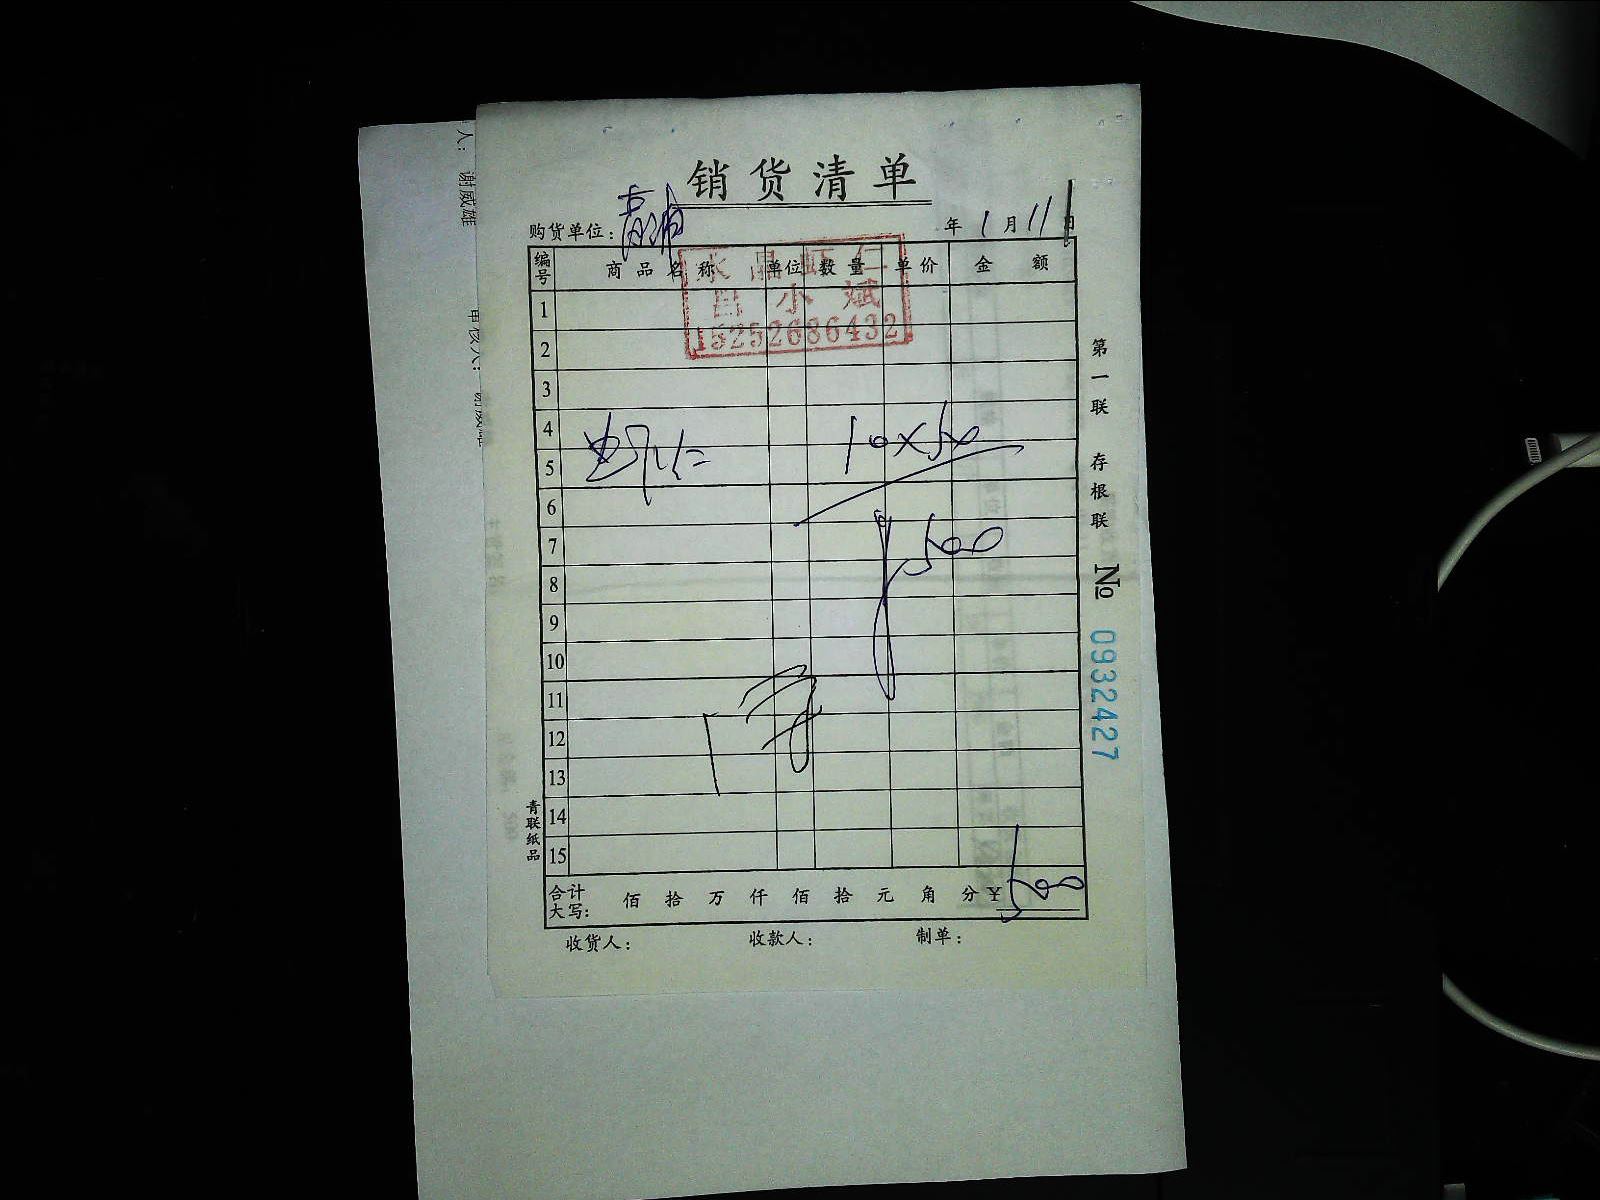 人：谢威雄
审核人：谢威雄
销货清单
购货单位：青浦
年 1 月 11 日
编号 商品名称 单位 数量 单价 金额
水晶虾仁
吕小斌
15252686432
1
2
3
4
虾仁 10×50
5
6
7
¥500
8
9
10
11
12
13
14
15
合计大写： 佰 拾 万 仟 佰 拾 元 角 分 ¥500
收货人： 收款人： 制单：
第一联 存根联 No 0932427
青联纸品